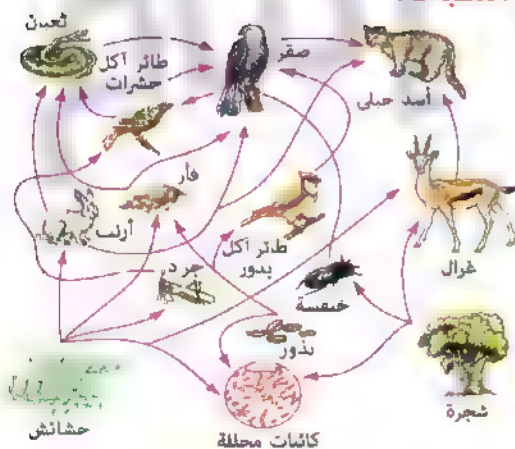 ثعبان
صقر
طائر آكل
حشرات
أسد جبلى
فأر
أرنب
طائر آكل
بذور
جراد
غزال
خنفسة
بذور
شجرة
حشائش
كائنات محللة